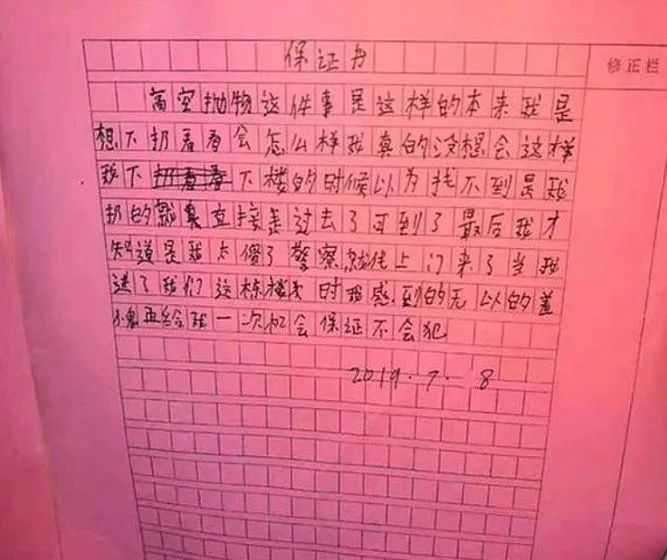 保证书
修正栏
高空抛物这件事是这样的本来我是
想下扔看看会怎么样我真的没想会这样
我下扔看看下楼的时候以为找不到是我
扔的就直接走过去了可到了最后我才
知道是我太傻了警察就上门来了当我
进了我们这栋楼时我感到的无以的羞
愧再给我一次机会保证不会犯
2019.7.8